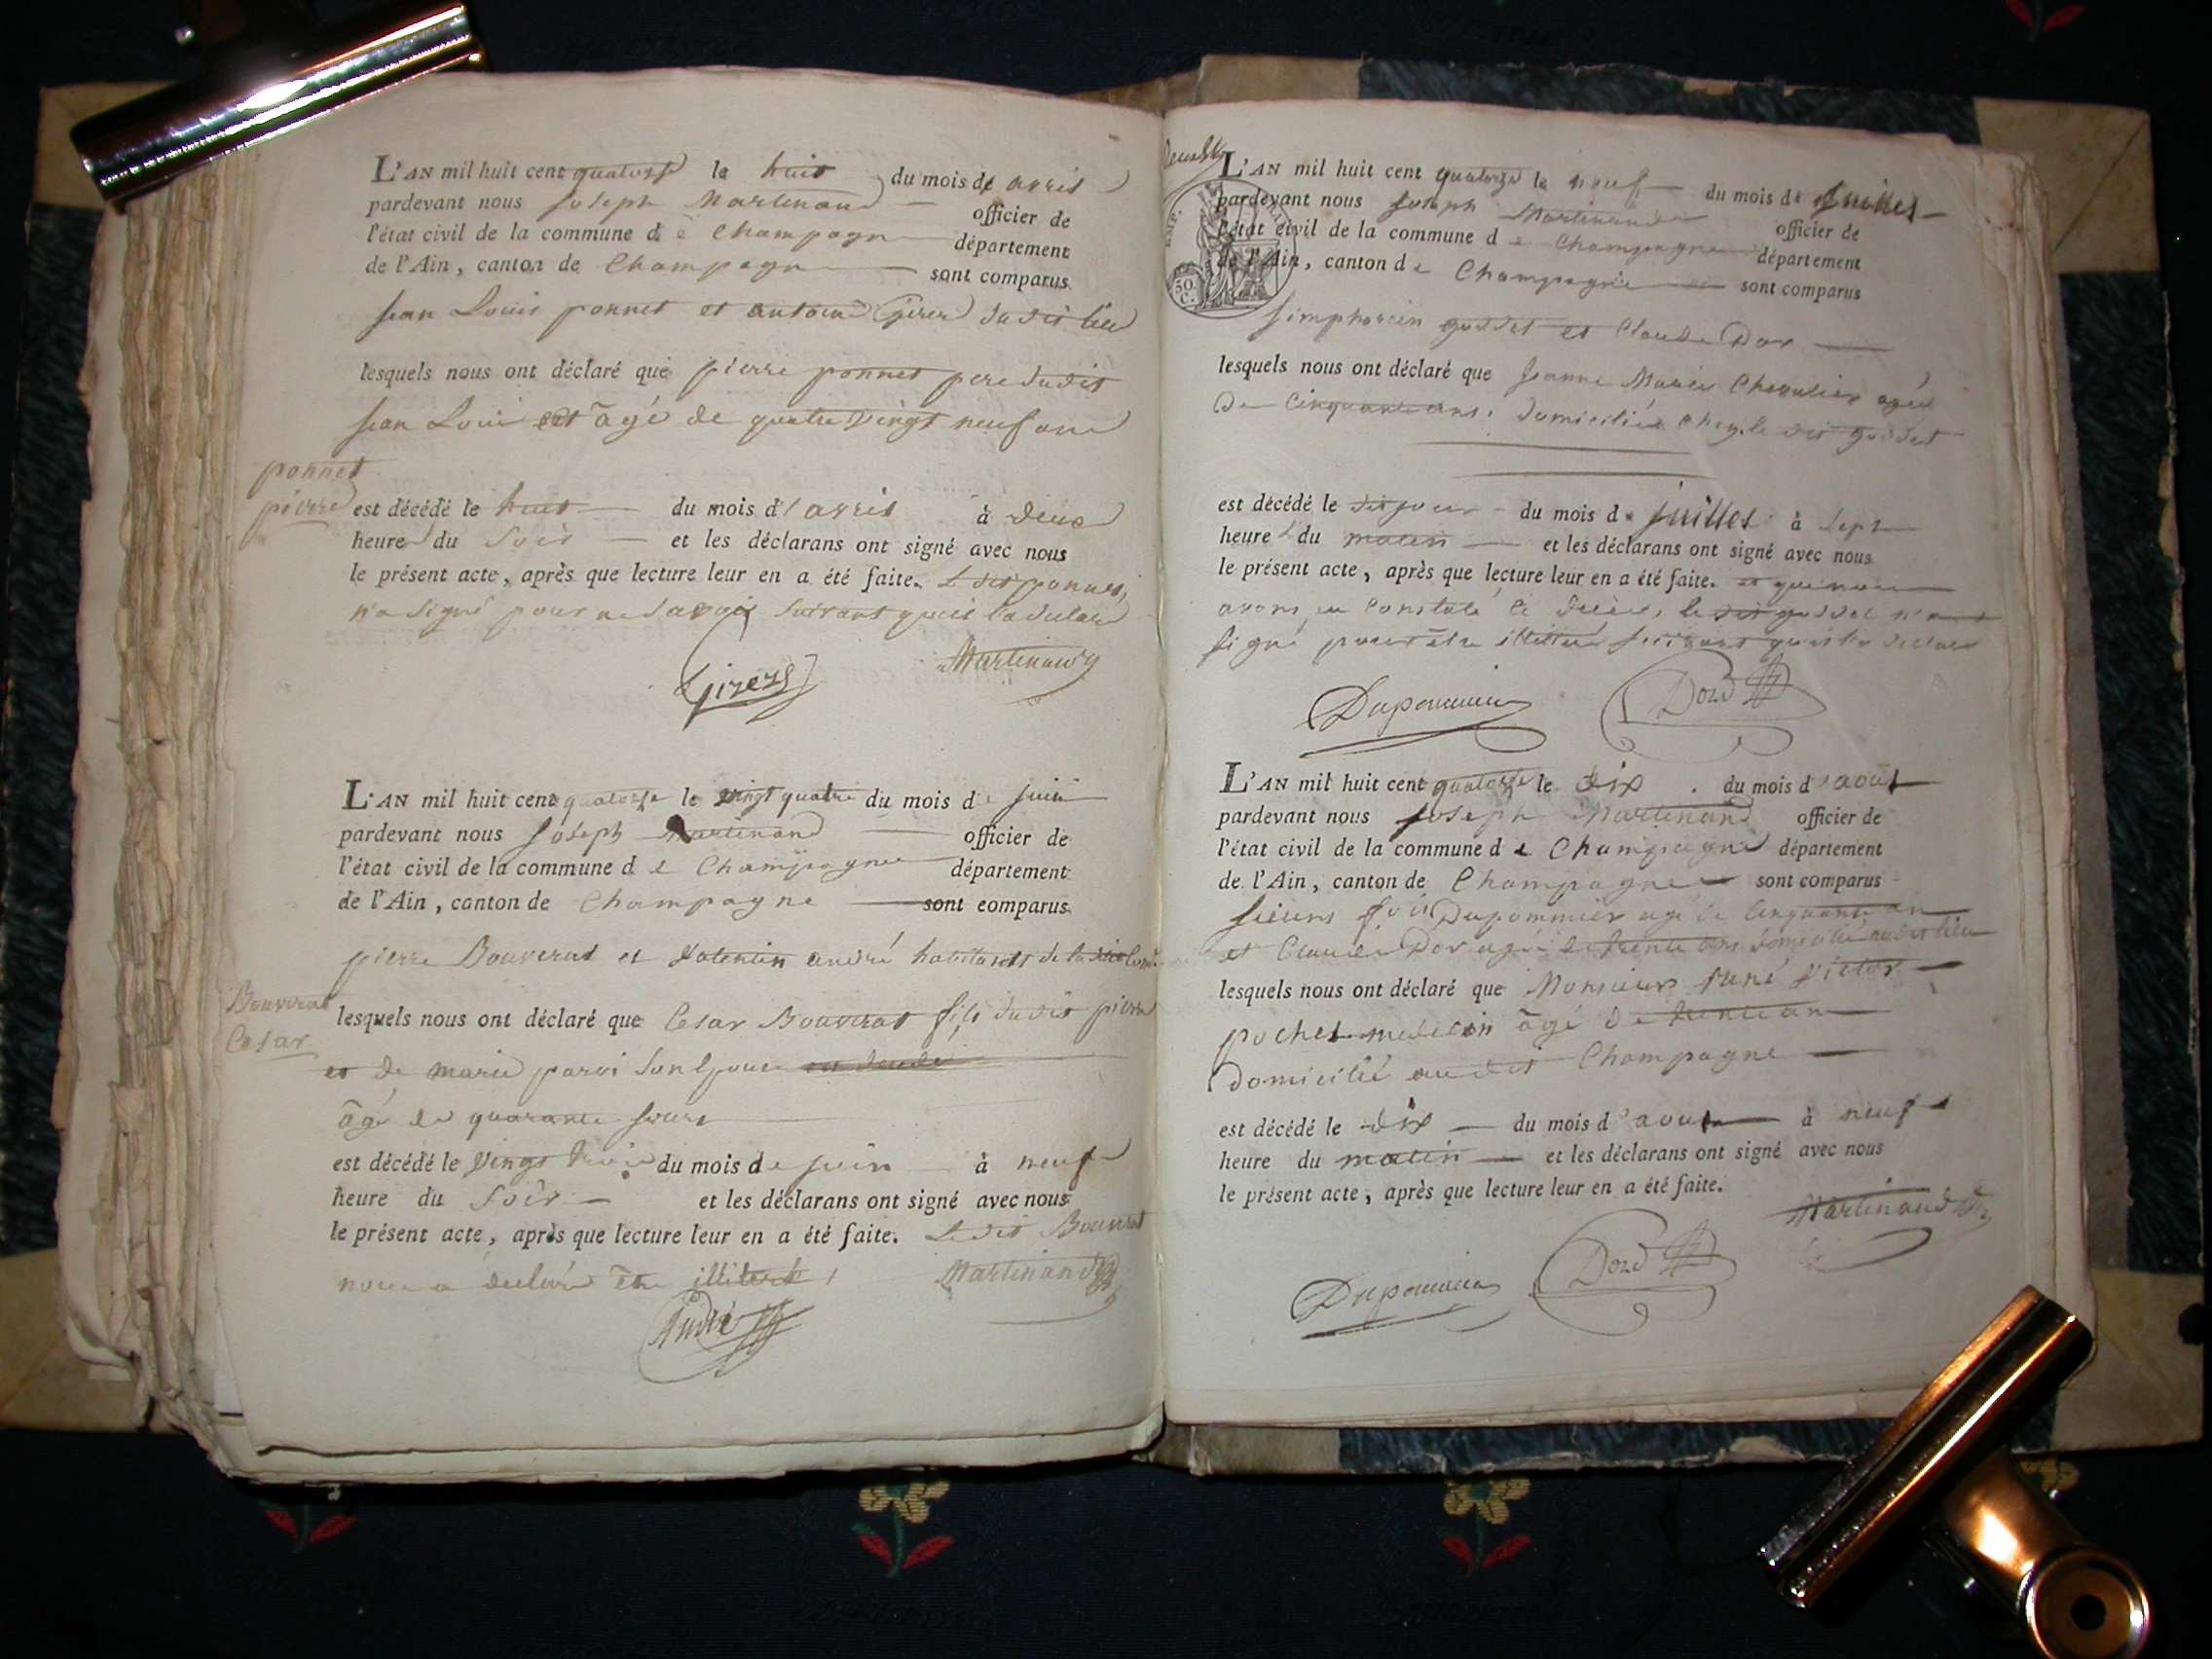 L'AN mil huit cent quatorse le huit du mois de avril
pardevant nous Joseph Martinand officier de
l'état civil de la commune de Champagne département
de l'Ain, canton de Champagne sont comparus
jean Louis ponnet et antoine Girer dudit lieu
lesquels nous ont déclaré que pierre ponnet pere dudit
jean Louis est âgé de quatre vingt neuf ans
ponnet
pierre
est décédé le huit du mois d'avril à deux
heure du Soir et les déclarans ont signé avec nous
le présent acte, après que lecture leur en a été faite. Le dit ponnet,
n'a Signé pour ne Savoir Suivant qu'il l'a declaré
Girerd Martinand
L'AN mil huit cent quatorse le vingt quatre du mois de juin
pardevant nous Joseph Martinand officier de
l'état civil de la commune de Champagne département
de l'Ain, canton de Champagne sont comparus
pierre Bouverat et Valentin andré habitants de
Bouverat
Cesar
lesquels nous ont déclaré que Cesar Bouverat fils dudit pierre
et de marie Son Epouse
âgé de quarante jours
est décédé le Vingt trois du mois de juin à neuf
heure du Soir et les déclarans ont signé avec nous
le présent acte, après que lecture leur en a été faite. Le dit Bouverat
nous a declaré être illiteré
Martinand
André
L'AN mil huit cent quatorze le neuf du mois de Juillet
pardevant nous Joseph Martinand officier de
l'état civil de la commune de Champagne département
de l'Ain, canton de Champagne sont comparus
50
C.
Simphorien goddet et Claude Dor
lesquels nous ont déclaré que Jeanne Marie Chevalier agée
De Cinquante ans, domiciliée Chez le dit goddet
est décédé le dit jour du mois de juillet à Sept
heure du matin et les déclarans ont signé avec nous
le présent acte, après que lecture leur en a été faite. et que nous
avons Constaté le Decès, le dit goddet n'a
Signé pour être illiteré Suivant qu'il l'a declaré
Dupommier Dord
L'AN mil huit cent quatorse le dix du mois d'aout
pardevant nous Joseph Martinand officier de
l'état civil de la commune de Champagne département
de l'Ain, canton de Champagne sont comparus
Sieurs Dupommier agé de Cinquante an
et Claude Dor agé de trente ans domicilié audit lieu
lesquels nous ont déclaré que Monsieur rené victor
pochet medecin âgé de trente an
domicilié audit Champagne
est décédé le dix du mois d'aout à neuf
heure du matin et les déclarans ont signé avec nous
le présent acte, après que lecture leur en a été faite.
Martinand
Dupommier Dord